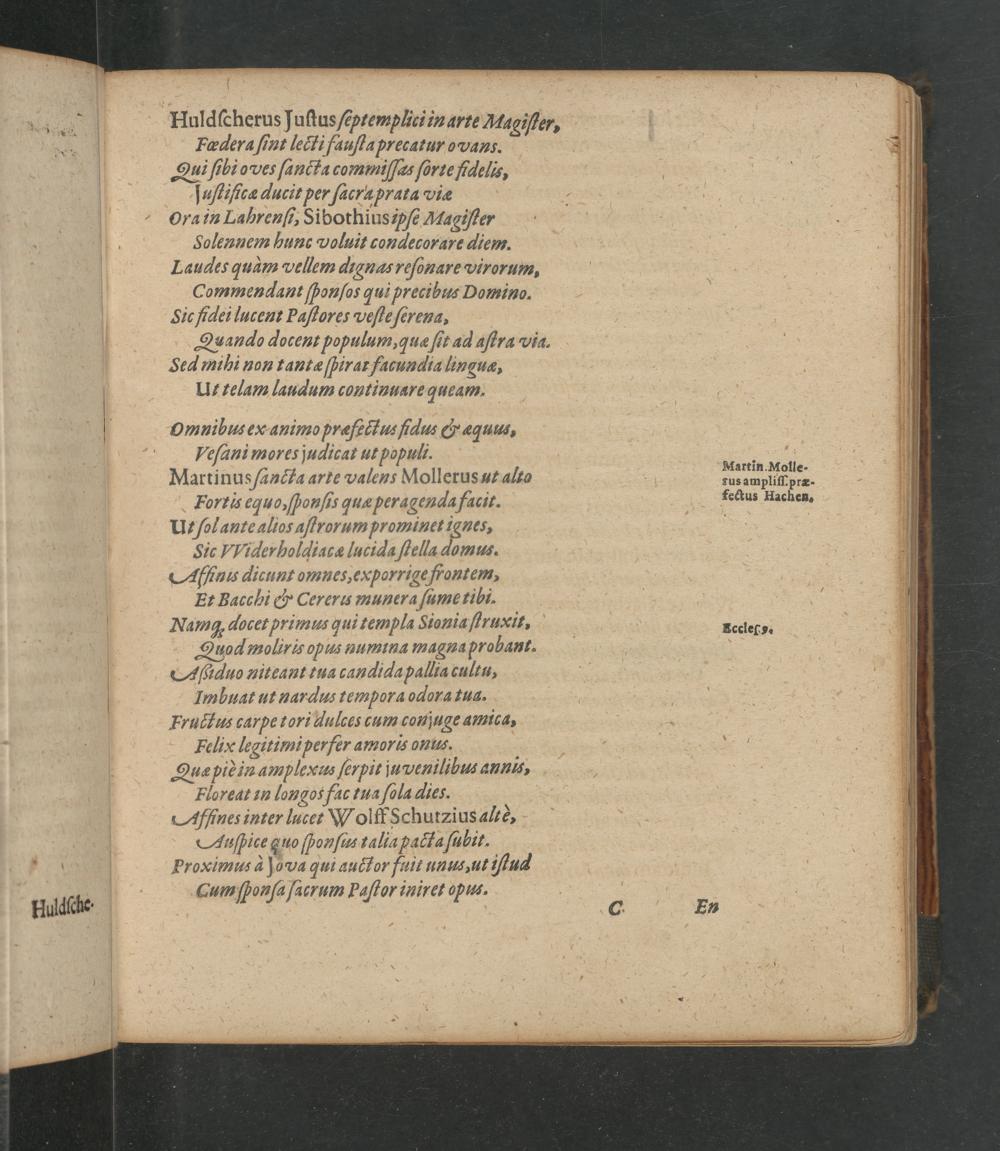 Huldſche-
Huldſcherus Juſtus ſeptemplici in arte Magiſter,
Fœdera ſint lecti fauſta precatur ovans.
Qui ſibi oves ſancta commiſſas ſorte fidelis,
Juſtificæ ducit per ſacra prata viæ
Ora in Lahrenſi, Sibothius ipſe Magiſter
Solennem hunc voluit condecorare diem.
Laudes quàm vellem dignas reſonare virorum,
Commendant ſponſos qui precibus Domino.
Sic fidei lucent Paſtores veſte ſerena,
Quando docent populum, quæ ſit ad aſtra via.
Sed mihi non tantæ ſpirat facundia linguæ,
Ut telam laudum continuare queam.
Omnibus ex animo præfectus fidus & æquus,
Veſani mores judicat ut populi.
Martinus ſancta arte valens Mollerus ut alto
Martin. Molle-
rus ampliſſ. præ-
fectus Hachen.
Fortis equo, ſponſis quæ peragenda facit.
Ut ſol ante alios aſtrorum prominet ignes,
Sic VViderholdiacæ lucida ſtella domus.
Affinis dicunt omnes, exporrige frontem,
Et Bacchi & Cereris munera ſume tibi.
Namq; docet primus qui templa Sionia ſtruxit,
Eccleſ. 9.
Quod moliris opus numina magna probant.
Aßiduo niteant tua candida pallia cultu,
Imbuat ut nardus tempora odora tua.
Fructus carpe tori dulces cum conjuge amica,
Felix legitimi perfer amoris onus.
Quæ piè in amplexus ſerpit juvenilibus annis,
Floreat in longos fac tua ſola dies.
Affines inter lucet Wolff Schutzius altè,
Auſpice quo ſponſus talia pacta ſubit.
Proximus à Jova qui auctor fuit unus, ut iſtud
Cum ſponſa ſacrum Paſtor iniret opus.
C
En